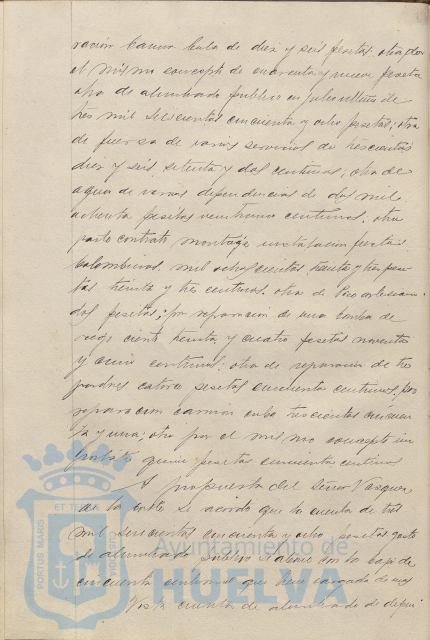 ración camion cuba de diez y seis pesetas; otra por
el mismo concepto de cuarenta y nueve pesetas
otra de alumbrado público en julio ultimo de
tres mil seiscientas cincuenta y ocho pesetas; otra
de fuerza de varios servicios de trescientas
diez y seis setenta y dos centimos; otra de
agua de varias dependencias de dos mil
ochenta pesetas veintiuno centimos; otra
parte contrato montage instalación fiestas
Colombinas mil ochocientas treinta y tres pese
tas treinta y tres centimos; otra de
dos pesetas; por reparacion de una bomba de
riego ciento treinta y cuatro pesetas noventa
y cinco centimos; otra de reparación de tres
catorce pesetas cincuenta centimos; por
reparacion camion cuba trescientas cincuen
ta y una; otra por el mismo concepto
quince pesetas cincuenta centimos
A propuesta del Señor Vazquez
de la Corte se acordo que la cuenta de tres
mil seiscientas cincuenta y ocho pesetas gasto
de alumbrado público se abone con la baja de
cincuenta centimos que hace cargada de mas
Vista cuenta de alumbrado de depen
PORTUS MARIS
ET TERRAE
Ayuntamiento de
HUELVA